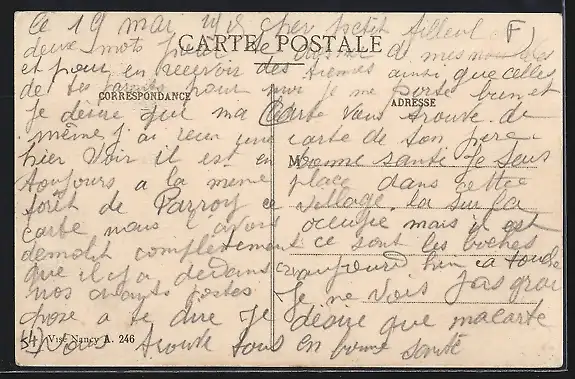 Ce 19 mai 1915 cher petit filleul
deux mots pour te donner de mes nouvelles
CARTE POSTALE
et pour en recevoir des tiennes ainsi que celles
de tes parents pour moi je me porte bien et
CORRESPONDANCE
ADRESSE
je désire que ma Carte vous trouve de
même j'ai reçu une carte de ton père
hier voir il est en bonne santé Je suis
M
toujours a la meme place dans cette
forêt de Parroy ce village la sur la
carte nous l'avons occupé mais il est
demolit complètement ce sont les boches
que il y a dedans aujourd hui a touche
nos avants postes Je ne vois pas grand
chose a te dire Je désire que ma carte
vous trouve tous en bonne santé
Visé Nancy A. 246